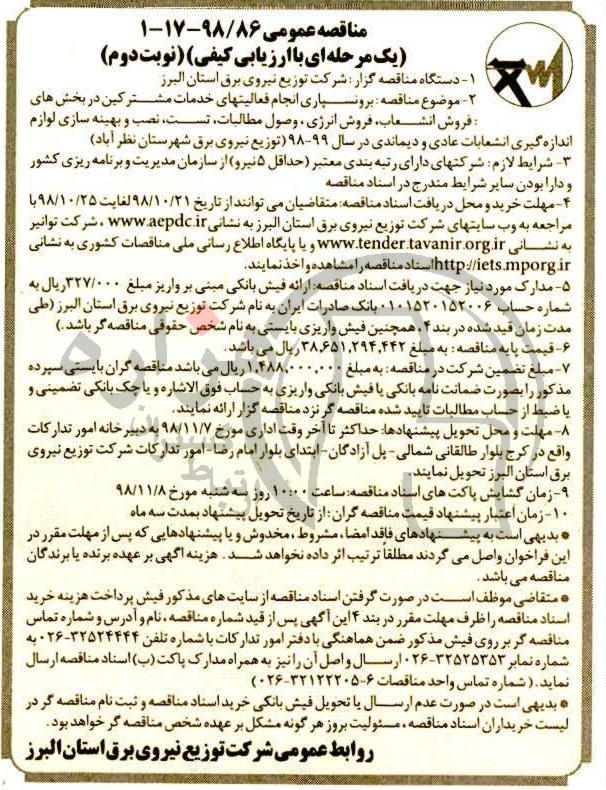 مناقصه عمومی ۹۸/۸۶-۱۷-۱
(یک مرحله‌ای با ارزیابی کیفی) (نوبت دوم)
۱- دستگاه مناقصه گزار: شرکت توزیع نیروی برق استان البرز
۲- موضوع مناقصه: برونسپاری انجام فعالیتهای خدمات مشترکین در بخش های
: فروش انشعاب، فروش انرژی، وصول مطالبات، تست، نصب و بهینه سازی لوازم
اندازه گیری انشعابات عادی و دیماندی در سال ۹۹-۹۸ (توزیع نیروی برق شهرستان نظر آباد)
۳- شرایط لازم: شرکتهای دارای رتبه بندی معتبر (حداقل ۵ نیرو) از سازمان مدیریت و برنامه ریزی کشور
و دارا بودن سایر شرایط مندرج در اسناد مناقصه
۴- مهلت خرید و محل دریافت اسناد مناقصه: متقاضیان می توانند از تاریخ ۹۸/۱۰/۲۱ لغایت ۹۸/۱۰/۲۵ با
مراجعه به وب سایتهای شرکت توزیع نیروی برق استان البرز به نشانی www.aepdc.ir ، شرکت توانیر
به نشانی www.tender.tavanir.org.ir و یا پایگاه اطلاع رسانی ملی مناقصات کشوری به نشانی
http://iets.mporg.ir اسناد مناقصه را مشاهده و اخذ نمایند.
۵- مدارک مورد نیاز جهت دریافت اسناد مناقصه: ارائه فیش بانکی مبنی بر واریز مبلغ ۳۲۷/۰۰۰ ریال به
شماره حساب ۰۱۰۱۵۲۰۱۵۲۰۰۶ بانک صادرات ایران به نام شرکت توزیع نیروی برق استان البرز (طی
مدت زمان قید شده در بند ۴، همچنین فیش واریزی بایستی به نام شخص حقوقی مناقصه گر باشد.)
۶- قیمت پایه مناقصه: به مبلغ ۳۸,۶۵۱,۲۹۴,۴۴۲ ریال می باشد.
۷- مبلغ تضمین شرکت در مناقصه: به مبلغ ۱,۴۸۸,۰۰۰,۰۰۰ ریال می باشد مناقصه گران بایستی سپرده
مذکور را بصورت ضمانت نامه بانکی یا فیش بانکی واریزی به حساب فوق الاشاره و یا چک بانکی تضمینی و
یا ضبط از حساب مطالبات تایید شده مناقصه گر نزد مناقصه گزار ارائه نمایند.
۸- مهلت و محل تحویل پیشنهادها: حداکثر تا آخر وقت اداری مورخ ۹۸/۱۱/۷ به دبیرخانه امور تدارکات
واقع در کرج بلوار طالقانی شمالی- پل آزادگان- ابتدای بلوار امام رضا- امور تدارکات شرکت توزیع نیروی
برق استان البرز تحویل نمایند.
۹- زمان گشایش پاکت های اسناد مناقصه: ساعت ۱۰:۰۰ روز سه شنبه مورخ ۹۸/۱۱/۸
۱۰- زمان اعتبار پیشنهاد قیمت مناقصه گران: از تاریخ تحویل پیشنهاد بمدت سه ماه
* بدیهی است به پیشنهادهای فاقد امضا، مشروط، مخدوش و یا پیشنهادهایی که پس از مهلت مقرر در
این فراخوان واصل می گردند مطلقاً ترتیب اثر داده نخواهد شد. هزینه آگهی بر عهده برنده یا برندگان
مناقصه می باشد.
* متقاضی موظف است در صورت گرفتن اسناد مناقصه از سایت های مذکور فیش پرداخت هزینه خرید
اسناد مناقصه را ظرف مهلت مقرر در بند ۴ این آگهی پس از قید شماره مناقصه، نام و آدرس و شماره تماس
مناقصه گر بر روی فیش مذکور ضمن هماهنگی با دفتر امور تدارکات با شماره تلفن ۳۲۵۲۴۴۴۴-۰۲۶ به
شماره نمابر ۳۲۵۲۵۳۵۳-۰۲۶ ارسال و اصل آن را نیز به همراه مدارک پاکت (ب) اسناد مناقصه ارسال
نماید. (شماره تماس واحد مناقصات ۶-۳۲۱۲۲۲۰۵-۰۲۶)
* بدیهی است در صورت عدم ارسال یا تحویل فیش بانکی خرید اسناد مناقصه و ثبت نام مناقصه گر در
لیست خریداران اسناد مناقصه، مسئولیت بروز هر گونه مشکل بر عهده شخص مناقصه گر خواهد بود.
روابط عمومی شرکت توزیع نیروی برق استان البرز